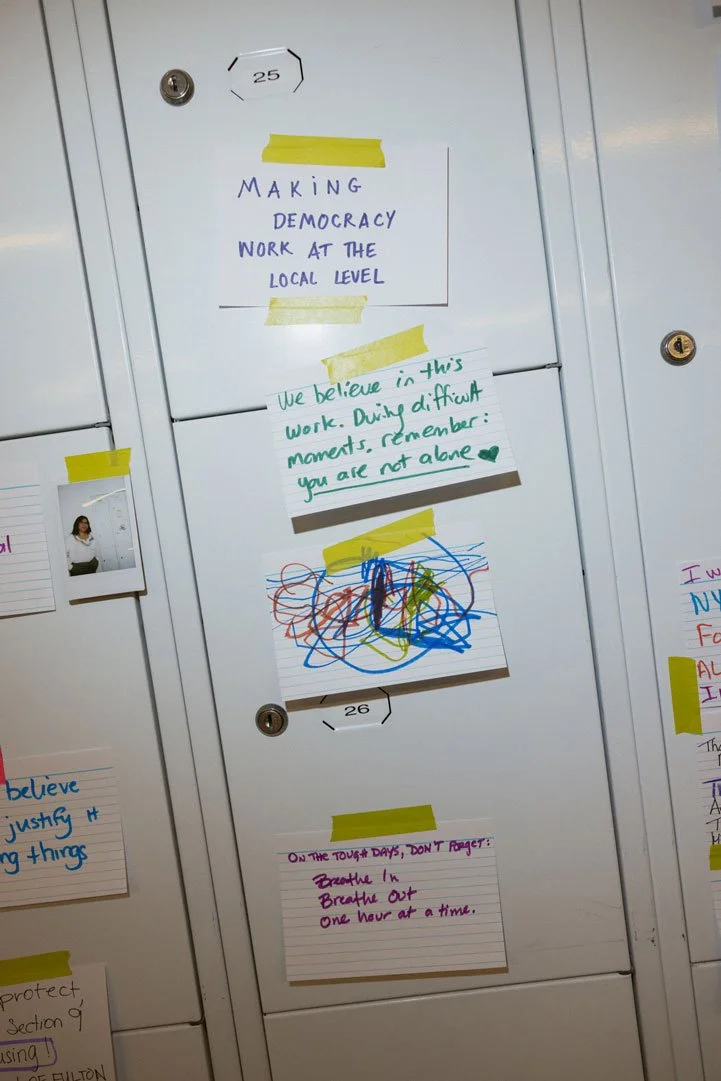 25
MAKING
DEMOCRACY
WORK AT THE
LOCAL LEVEL
We believe in this
work. During difficult
moments, remember:
you are not alone
26
ON THE TOUGH DAYS, DON'T FORGET:
Breathe In
Breathe Out
One hour at a time.
believe
justify it
ng things
protect,
Section 9
using!
OF FULTON
al
I w
NY
Fo
AL
I
Tha